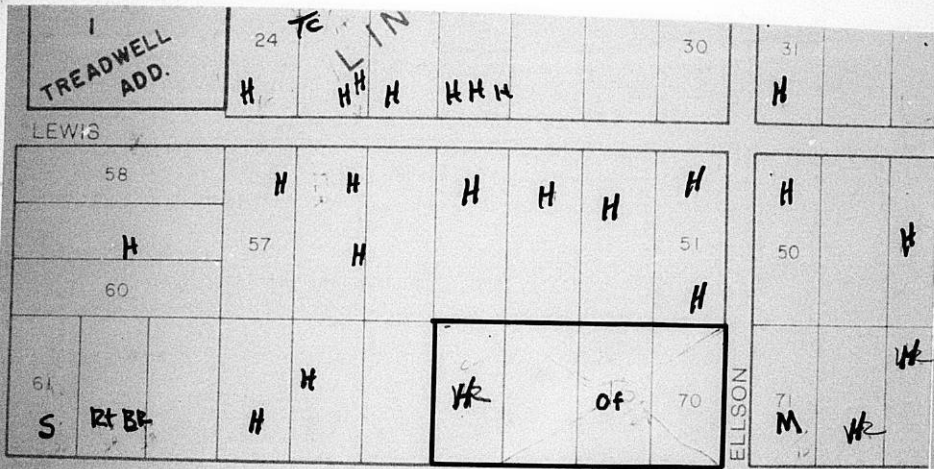 1
TREADWELL
ADD.
24
TC
LIN
30
31
H
H H H
H H H
H
LEWIS
58
H
H
H
H
H
H
H
H
57
H
51
50
H
60
H
61
H
H
S
Rt BR
Of
70
ELLSON
71
M